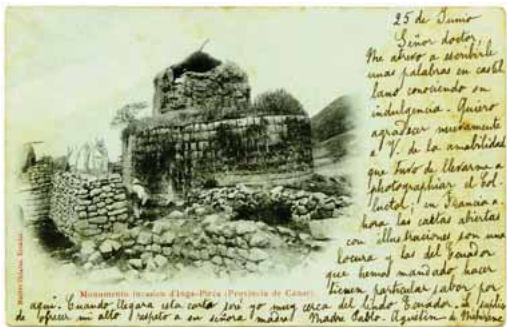 25 de Junio
Señor doctor,
Me atrevo a escribirle
unas palabras en castel
lano conociendo su
indulgencia. Quiero
agradecer nuevamente
a V. de la amabilidad
que tuvo de llevarme a
photographiar el Bol-
luctol; en Francia a-
hora las cartas abiertas
con illustraciones son una
locura y las del Ecuador
que hemos mandado hacer
tienen particular sabor por
aquí. Cuando llegara esta carta seré yo muy cerca del lindo Ecuador. Le suplico
de ofrecer mi alto respeto a su señora madre! Madre Pablo. Agustin de
Monumento incasico d'Inga-Pirca (Provincia de Cañar).